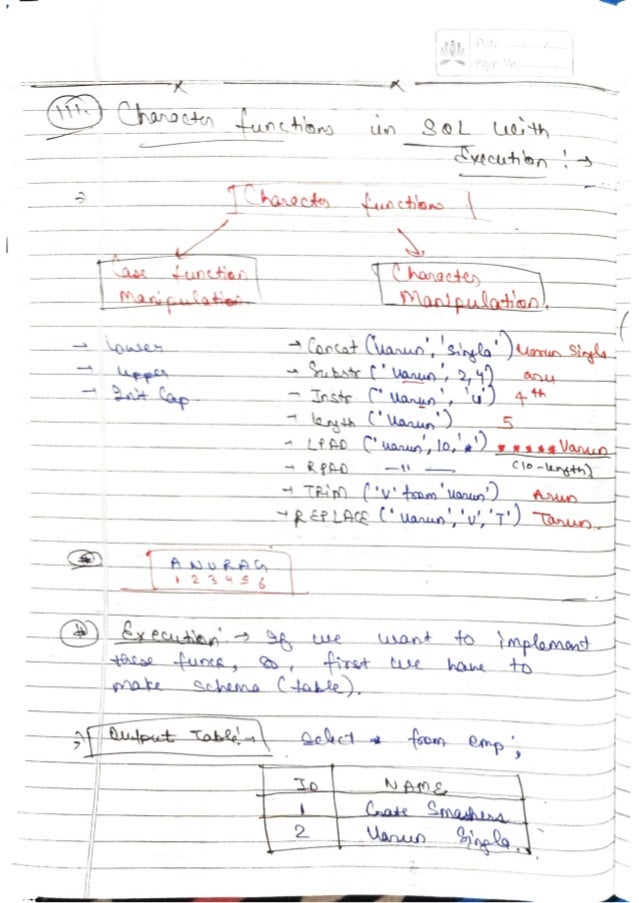 Date
Page No.
x x
iii. Character functions in SQL with
Execution :→
Character functions
Case function
Manipulation
Character
Manipulation.
→ lower
→ upper
→ Init Cap
→ Concat ('Varun', 'singla') Varun Singla
→ Substr ('Varun', 2,4) aru
- Instr ('Varun', 'u') 4th
→ length ('Varun') 5
→ LPAD ('varun', 10, '*') *****Varun
→ RPAD —"— (10-length)
→ TRIM ('V' from 'varun') Arun
→ REPLACE ('Varun', 'V', 'T') Tarun.
ANURAG
1 2 3 4 5 6
Execution :→ If we want to implement
these funcs, so, first we have to
make schema (table).
Output Table :→ Select * from emp;
ID NAME
1 Gate Smashers
2 Varun Singla.